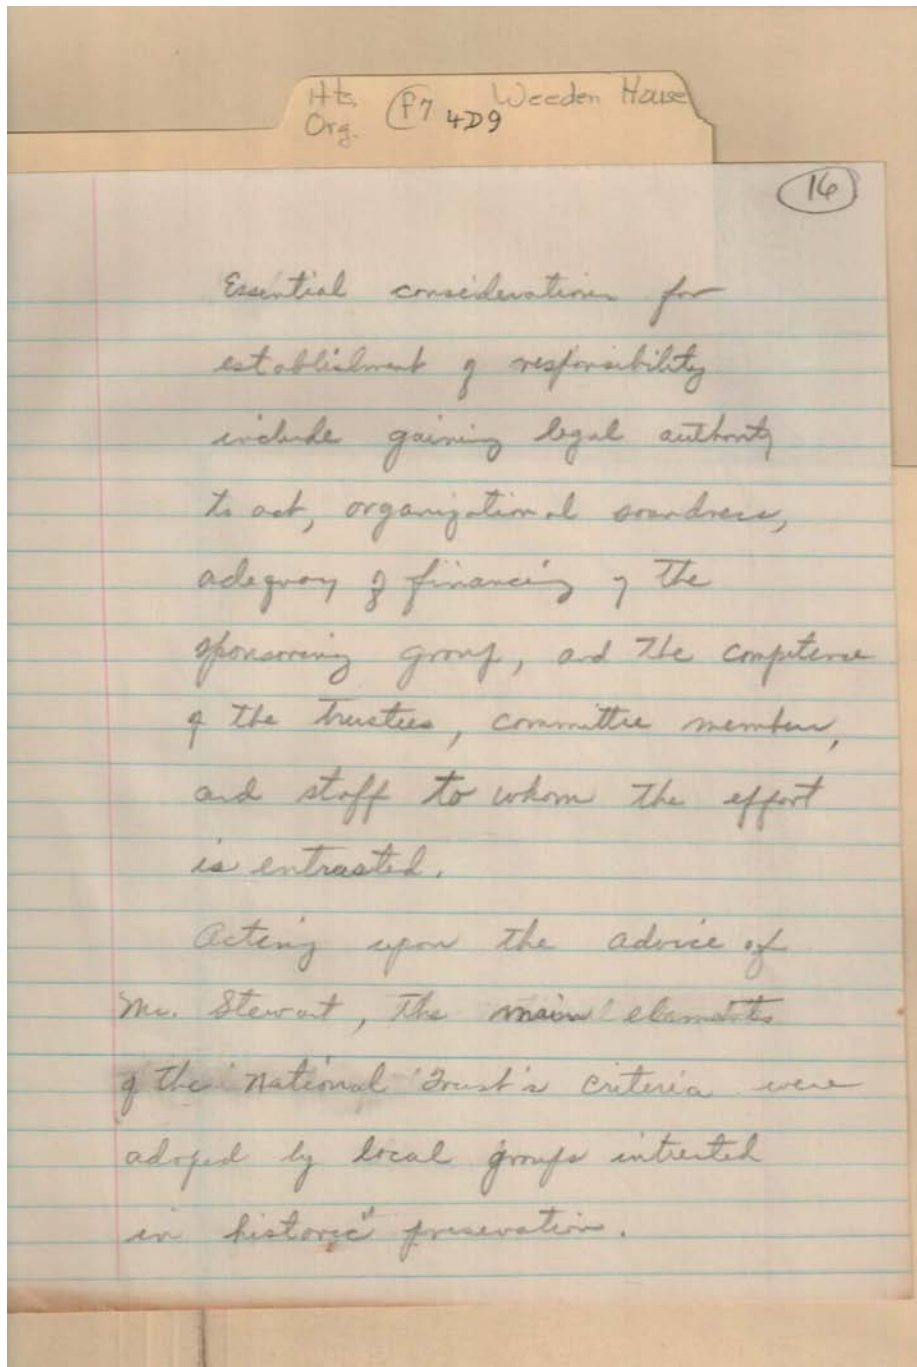 Hts. P7 4D9 Weeden House
Org.
16
Essential considerations for
establishment of responsibility
include gaining legal authority
to act, organizational soundness,
adequacy of financing of the
sponsoring group, and the competence
of the trustees, committee members,
and staff to whom the effort
is entrusted.
Acting upon the advice of
Mr. Stewart, the main elements
of the National Trust's criteria were
adoped by local groups intrested
in historic preservation.